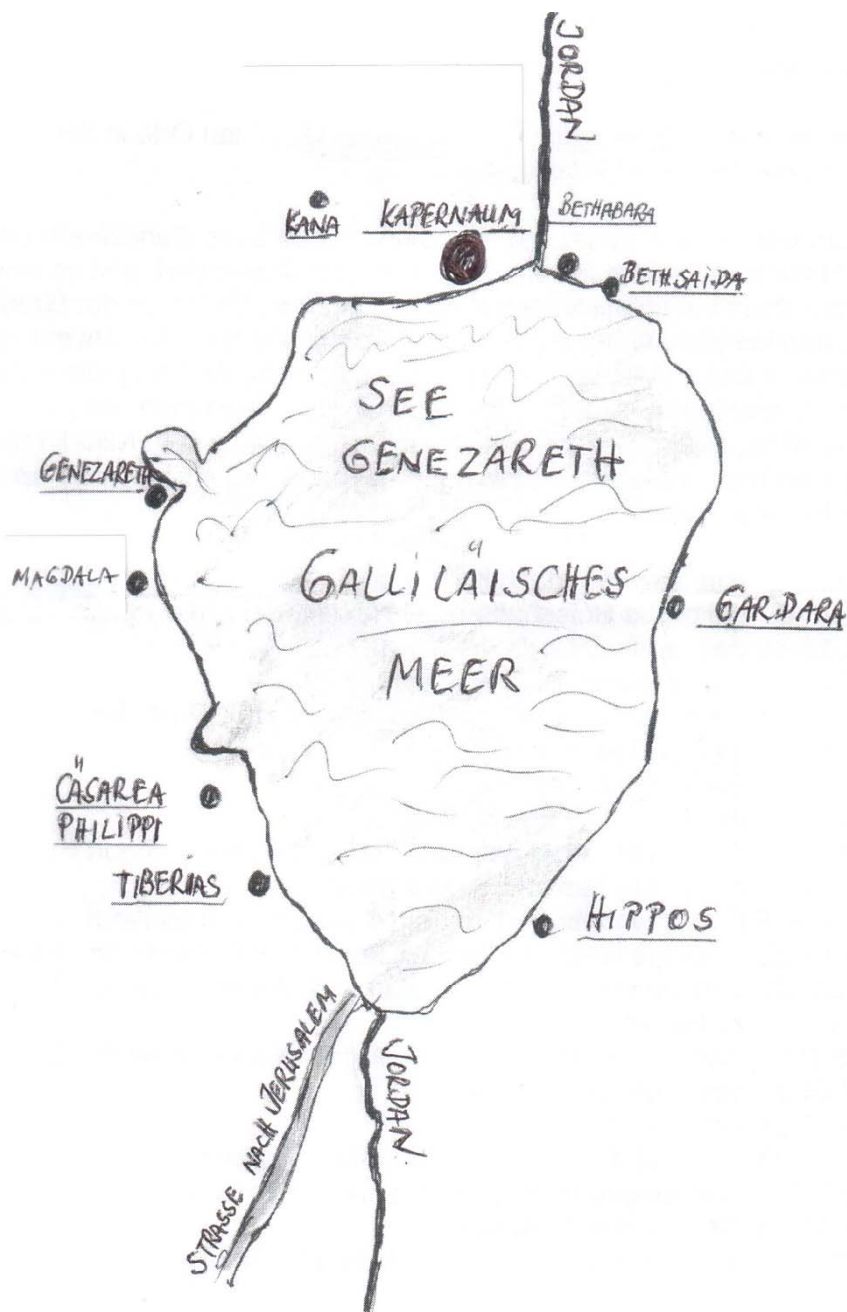 JORDAN
KANA
KAPERNAUM
BETHABARA
BETHSAIDA
SEE
GENEZARETH
GENEZARETH
MAGDALA
GALLILÄISCHES
MEER
GARDARA
CÄSAREA
PHILIPPI
TIBERIAS
HIPPOS
STRASSE NACH JERUSALEM
JORDAN